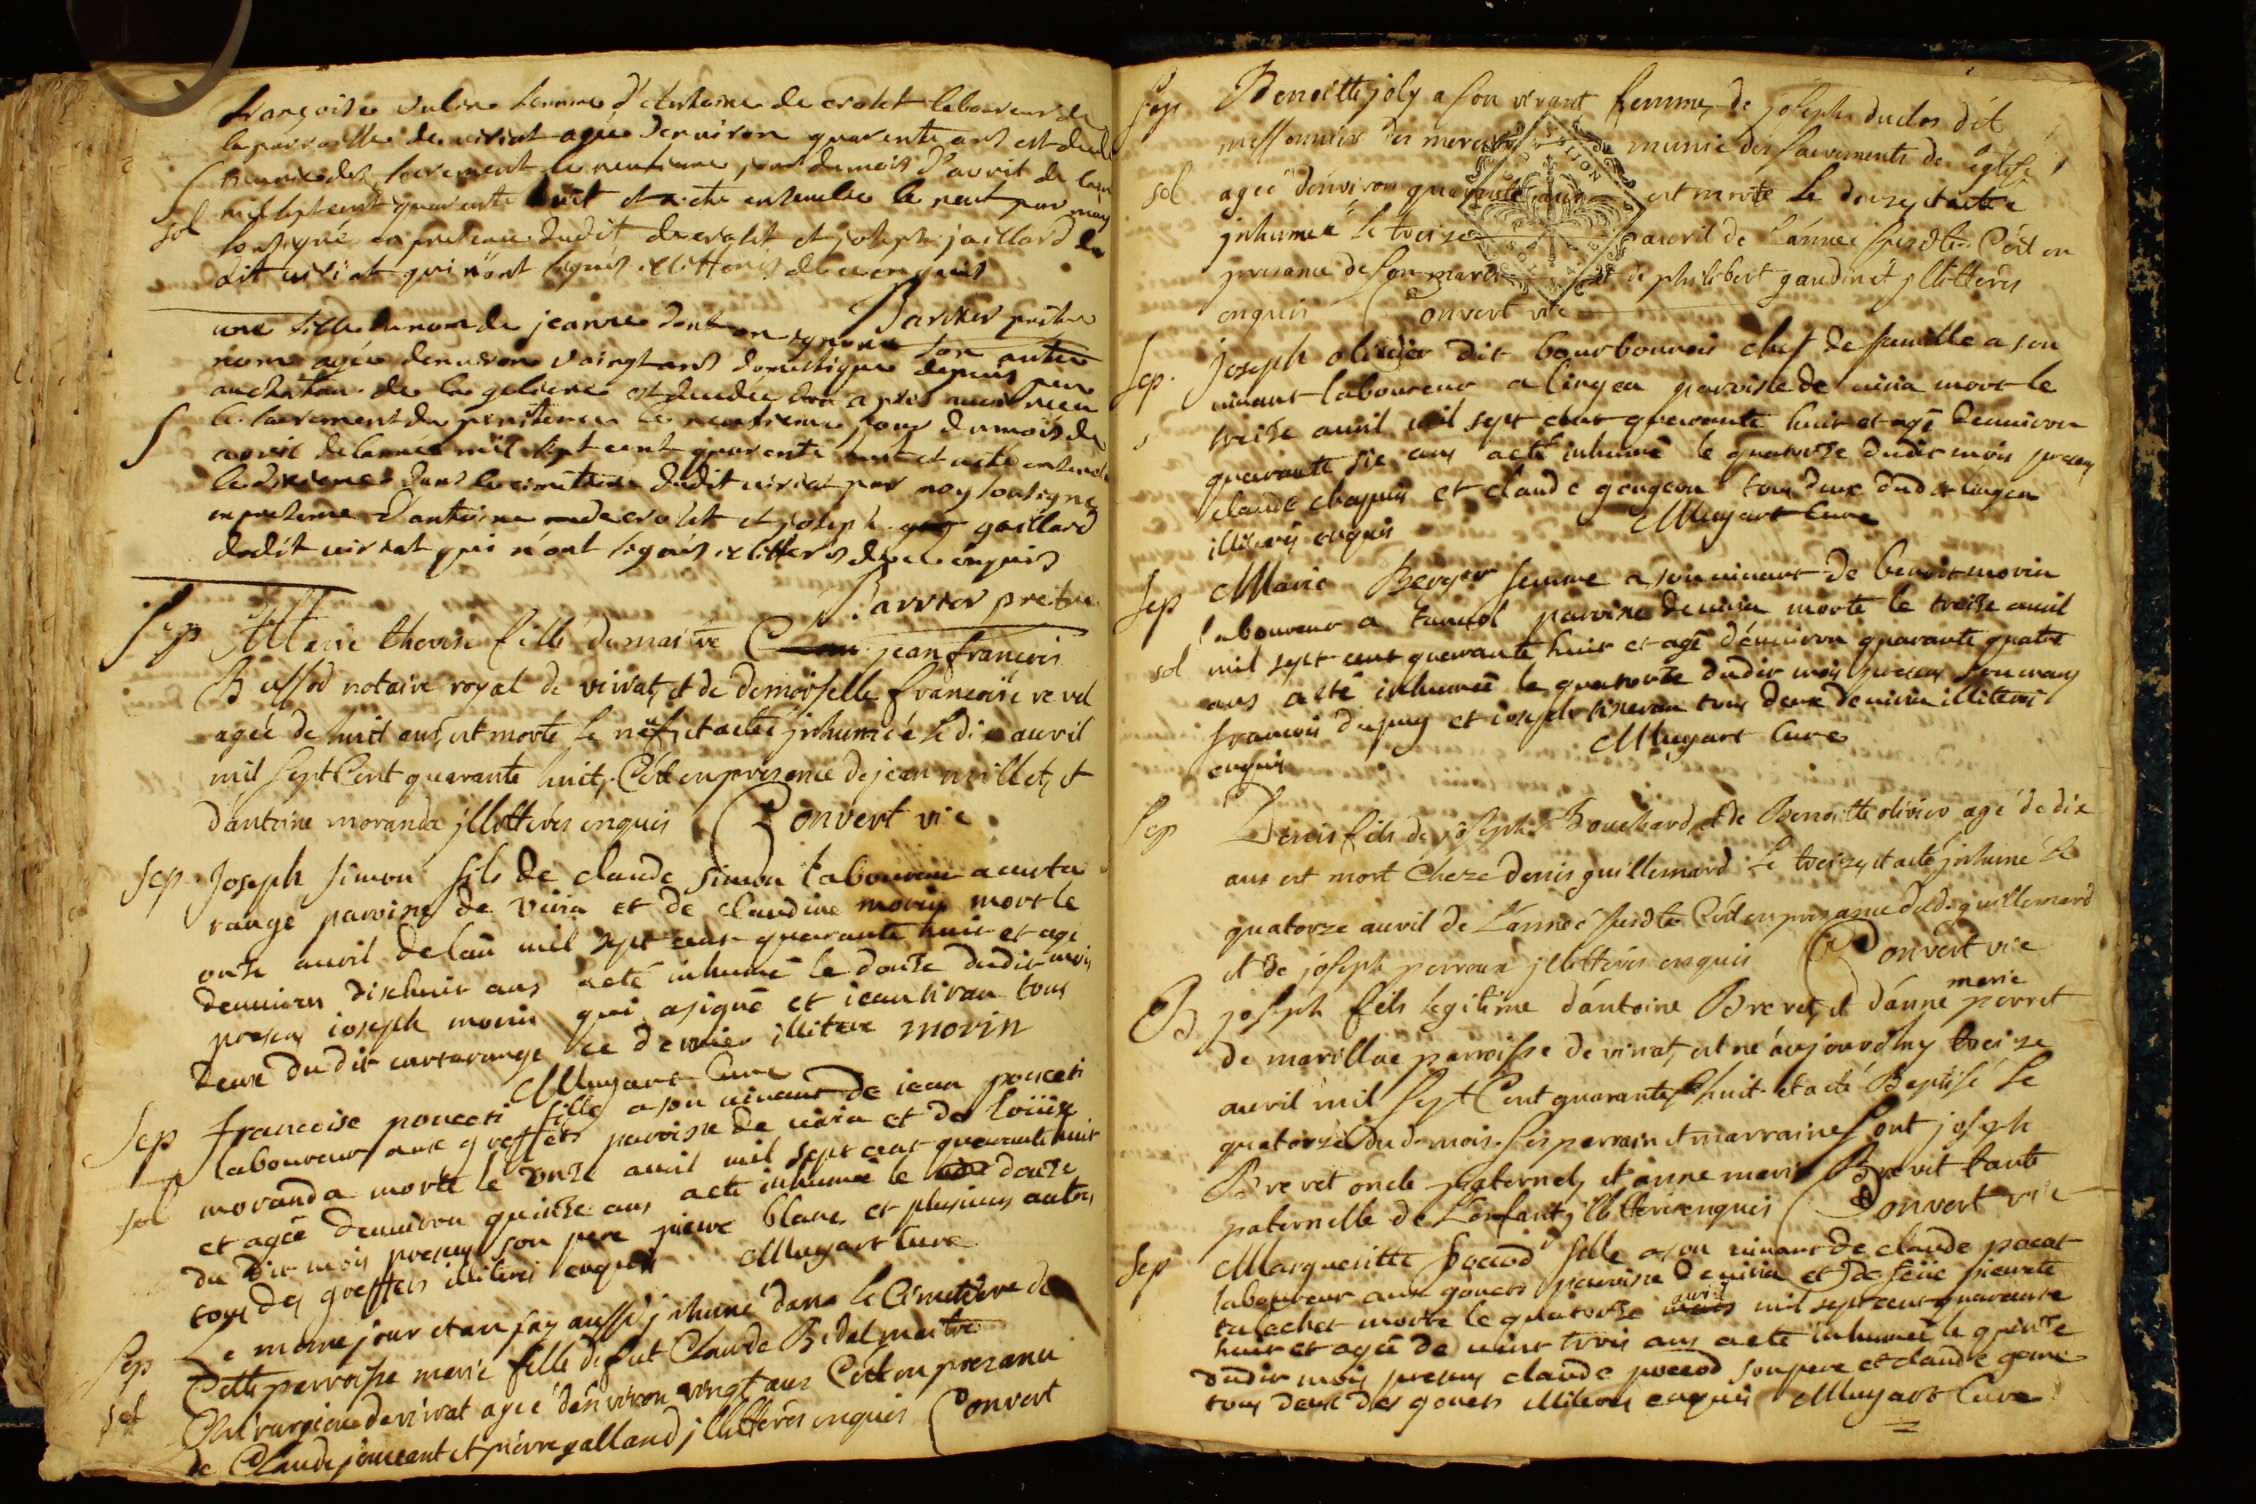 françoise femme d'Antoine de crolet laboureur de
la parroisse de viriat agée denviron quarente ans est
munie des sacrement le neufieme jour du mois d'avril de
S mil sept cent quarente huit et a ete le neuf par moy
sol soussigné en presence dudit decrolet et joseph jaillard du
dit viriat qui n'ont signés illitterés de ce enquis
Barrier prêtre
une fille du nom de jeanne dont on ignore son autre
nom agée denviron vaingt ans domestique depuis peu
au chateau de la geliere est decedée
S le sacrement de penitence le neufieme jour du mois de
avril de lannée mil sept cent quarente huit et a ete
le dixieme dans le cimetiere dudit viriat par moy soussigné
en presence d'antoine decrolet et joseph gaillard
dudit viriat qui n'ont signés illitterés de ce enquis
Barrier prêtre
Sep Marie therese fille du maitre jean francois
Buffod notaire royal de viriat, et de demoiselle francoise revel
agée de huit ans, est morte le neuf, et a eté jnhumée le dix auvril
mil sept Cent quarante huit, Cet en presence de jean millet, et
d'antoine moranda jllitterés enquis Convert vic
Sep Joseph simon fils de claude simon laboureur a curta
range parroisse de viria et de claudine morin mort le
onze avril de lan mil sept cent quarante huit et agé
denviron dixhuit ans a eté inhumé le douze dudit mois
presens ioseph morin qui a signé et iean tous
deux dudit curtarange ce dernier illiteré morin
Muyart Curé
Sep francoise ponceti fille a son vivant de iean ponceti
laboureur aux greffets parroisse de viria et de loüise
sol moranda morte le onze avril mil sept cent quarante huit
et agée denviron quinze ans a eté inhumée le douze
du dit mois presens son pere pierre blanc et plusieurs autres
tous des greffets illiterés enquis Muyart Curé
Sep Le meme jour et an fay aussi jnhumé dans le Cimetiere de
Cette parroisse marie fille de fut Claude Bidal maitre
sol Chirurgien de viriat agée d'environ vingt ans Cet en presence
de Claude et pierre galland jllitterés enquis Convert
Sep Benoitte joly a son vivant femme de joseph duclos dit
munie des sacrements de églisé
sol agée d'environ quarante ans est morte le douze, et a eté
jnhumée le treize auvril de l'année susdte Cet en
presance de son mari et de philibert gaudin et jllitterés
enquis Convert vic
Sep. Joseph olivier dit bourbonnois chef de famille a son
vivant laboureur a lingea parroisse de viria mort le
s treize avril mil sept cent quarante huit et agé denviron
quarante six ans a eté inhumé le quatorze dudit mois presens
claude chapuis et claude gengeon tous deux dudit lingea
illiterés enquis Muyart Curé
Sep Marie Berger femme a son vivant de benoit morin
laboureur a parroisse de viria morte le treize avril
sol mil sept cent quarante huit et agé d'environ quarante quatre
ans a eté inhumée le quatorze dudit mois presens son mary
francois dupuy et ioseph tous deux de viria illiterés
enquis Muyart Curé
Sep Denis fils de joseph Bouchard, et de Benoitte olivier agé de dix
ans est mort Cheze denis guillemard le treize, et a eté jnhumé le
quatorze auvril de l'année susdte Cet en presance dud. guillemard
et de joseph perroux jllitterés enquis Convert vic
B joseph fils legitime d'antoine Brevet, et d'anne marie perret
de marillac parroisse de viriat, est né aujourdhuy treize
auvril mil sept Cent quarante huit et a eté Baptisé le
quatorze du d. mois. ses parrain et marraine sont joseph
Brevet oncle paternel, et anne marie Brevet tante
paternelle de L'enfant, jllitterés enquis Convert vic
Sep Margueritte poccod fille a son vivant de claude pocat
laboureur aux gonets parroisse de viria et de feüe pierrete
tarachet morte le quatorze avril mil sept cent quarante
huit et agée de vint trois ans a eté inhumée le quinze
dudit mois presens claude poccod son pere et claude
tous deux des gonets illiterés enquis Muyart Curé